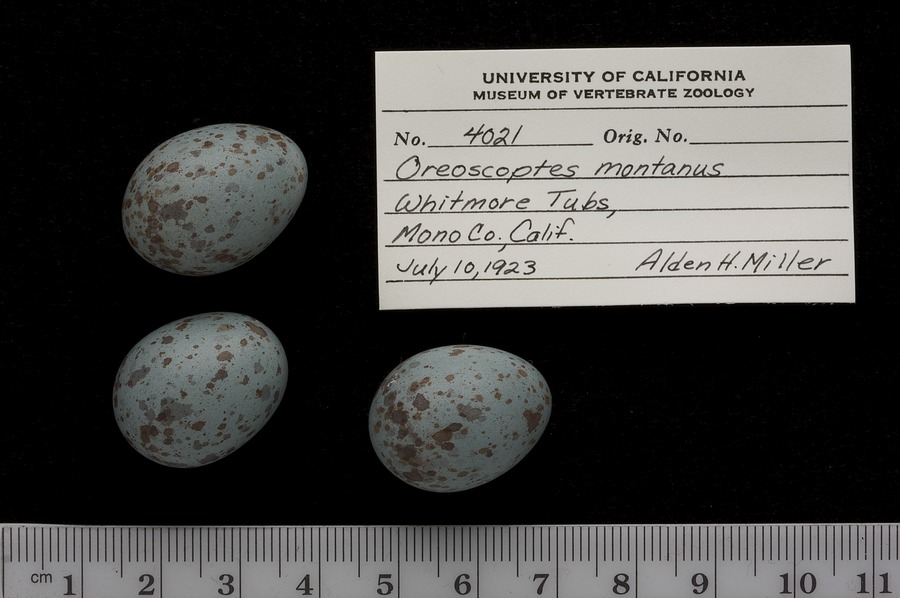 UNIVERSITY OF CALIFORNIA
MUSEUM OF VERTEBRATE ZOOLOGY
No. 4021 Orig. No.
Oreoscoptes montanus
Whitmore Tubs,
Mono Co., Calif.
July 10, 1923 Alden H. Miller
cm 1 2 3 4 5 6 7 8 9 10 11